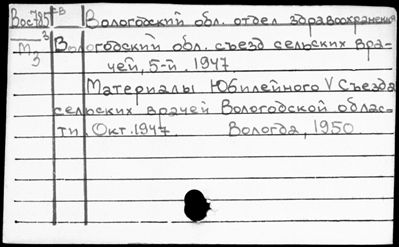 Вос785 Вологодский обл. отдел здравоохранения
М3 Вологодский обл. съезд сельских вра-
чей, 5-й. 1947
Материалы Юбилейного V Съезда
сельских врачей Вологодской облас-
ти. Окт. 1947 Вологда, 1950